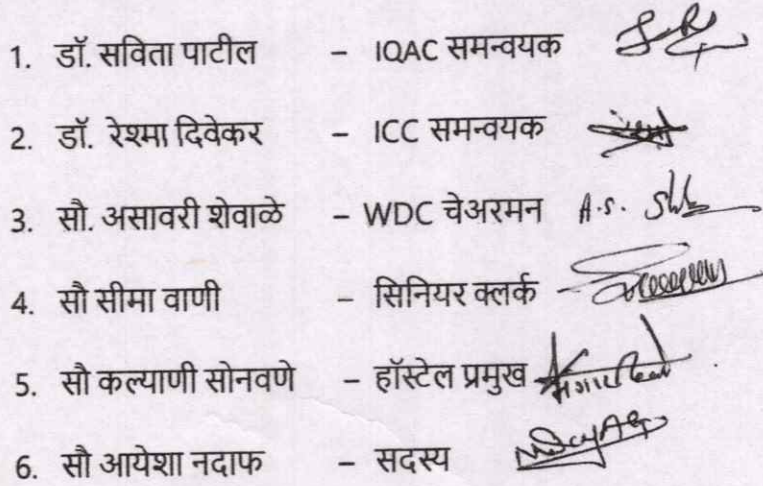 1. डॉ. सविता पाटील – IQAC समन्वयक
2. डॉ. रेश्मा दिवेकर – ICC समन्वयक
3. सौ. असावरी शेवाळे – WDC चेअरमन A.S.
4. सौ सीमा वाणी – सिनियर क्लर्क
5. सौ कल्याणी सोनवणे – हॉस्टेल प्रमुख
6. सौ आयेशा नदाफ – सदस्य